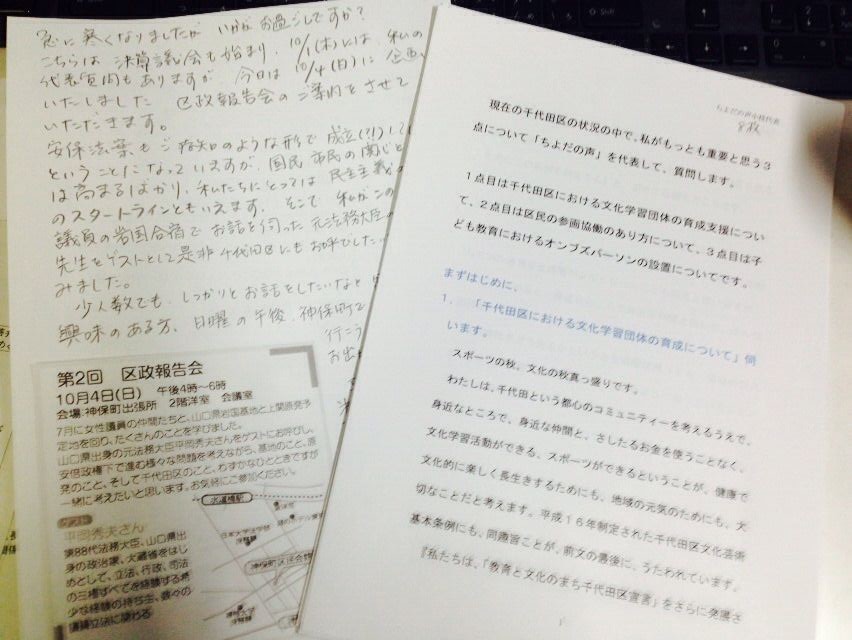 急に寒くなりましたが いかが お過ごしですか?
こちらは 決算議会も始まり、10/1(木)には、私の
代表質問もありますが、今日は 10/4(日)に 企画
いたしました 区政報告会のご案内をさせて
いただきます。
安保法案もご存知のような形で成立(!?)して
ということになっていますが、国民 市民の関心
は高まるばかり、私たちにとっては 民主主義の
のスタートラインともいえます。そこで 私がこの
議員の岩国合宿で お話を伺った 元法務大臣の
先生をゲストとして是非千代田区にもお呼びした
みました。
少人数でも、しっかりとお話をしたいなと
興味のある方、日曜の午後、神保町で
行こう
お出
第2回 区政報告会
10月4日(日) 午後4時~6時
会場 神保町出張所 2階洋室 会議室
7月に女性議員の仲間たちと、山口県岩国基地と上関原発予
定地を回り、たくさんのことを学びました。
山口県出身の元法務大臣平岡秀夫さんをゲストにお呼びし、
安倍政権下で進む様々な問題を考えながら、基地のこと、原
発のこと、そして千代田区のこと、わずかなひとときですが
一緒に考えたいと思います。お気軽にご参加ください。
ゲスト
平岡秀夫さん
第88代法務大臣、山口県出
身の政治家、大蔵省をはじ
めとして、立法、行政、司法
の三権すべてを経験する希
少な経験の持ち主、数々の
議員立法に関わる
水道橋駅
日本大学法学部
神保町区民会館
ちよだの声小枝代表
現在の千代田区の状況の中で、私がもっとも重要と思う3
点について「ちよだの声」を代表して、質問します。
1点目は千代田区における文化学習団体の育成支援につい
て、2点目は区民の参画協働のあり方について、3点目は子
ども教育におけるオンブズパーソンの設置についてです。
まずはじめに、
1、「千代田区における文化学習団体の育成について」伺
います。
スポーツの秋、文化の秋真っ盛りです。
わたしは、千代田という都心のコミュニティーを考えるうえで、
身近なところで、身近な仲間と、さしたるお金を使うことなく、
文化学習活動ができる、スポーツができるということが、健康で
文化的に楽しく長生きするためにも、地域の元気のためにも、大
切なことだと考えます。平成16年制定された千代田区文化芸術
基本条例にも、同趣旨ことが、前文の最後に、うたわれています。
『私たちは、「教育と文化のまち千代田区宣言」をさらに発展さ